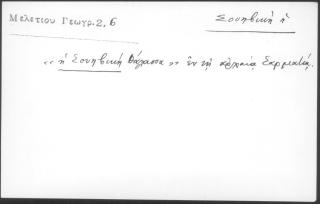 Σουηβική ἡ
Μελετίου Γεωγρ.2, 6
«ἡ Σουηβική θάλασσα» ἐν τῇ ἀρχαίᾳ Σαρματίᾳ.